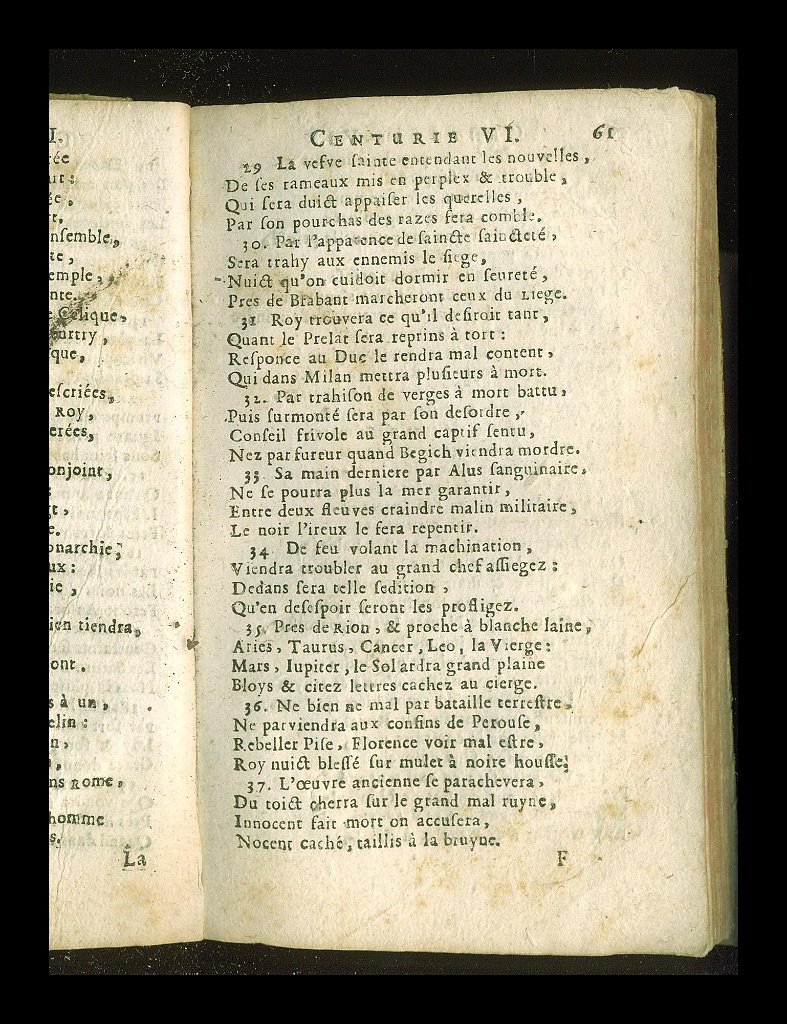 I.
rée
ut:
ée,
t.
nsemble,
te,
emple,
nte.
Celique,
urtry,
que,
escriées,
Roy,
erées,
onjoint,
t,
e.
onarchie;
ux:
ie,
ien tiendra,
ont.
s à un,
elin:
n,
ns Rome,
homme
s.
La
CENTURIE VI. 61
29 La vefve ſainte entendant les nouvelles,
De ſes rameaux mis en perplex & trouble,
Qui ſera duict appaiſer les querelles,
Par ſon pourchas des razes ſera comble.
30. Par l'apparence de ſaincte ſaincteté,
Sera trahy aux ennemis le ſiege,
Nuict qu'on cuidoit dormir en ſeureté,
Pres de Brabant marcheront ceux du Liege.
31 Roy trouvera ce qu'il deſiroit tant,
Quant le Prelat ſera reprins à tort:
Reſponce au Duc le rendra mal content,
Qui dans Milan mettra pluſieurs à mort.
32. Par trahiſon de verges à mort battu,
Puis ſurmonté ſera par ſon deſordre,
Conſeil frivole au grand captif ſentu,
Nez par fureur quand Begich viendra mordre.
33 Sa main derniere par Alus ſanguinaire,
Ne ſe pourra plus la mer garantir,
Entre deux fleuves craindre malin militaire,
Le noir l'ireux le fera repentir.
34 De feu volant la machination,
Viendra troubler au grand chef aſſiegez:
Dedans ſera telle ſedition,
Qu'en deſeſpoir ſeront les profligez.
35. Pres de Rion, & proche à blanche laine,
Aries, Taurus, Cancer, Leo, la Vierge:
Mars, Iupiter, le Sol ardra grand plaine
Bloys & citez lettres cachez au cierge.
36. Ne bien ne mal par bataille terreſtre,
Ne parviendra aux confins de Perouſe,
Rebeller Piſe, Florence voir mal eſtre,
Roy nuict bleſſé ſur mulet à noire houſſe;
37. L'œuvre ancienne ſe parachevera,
Du toict cherra ſur le grand mal ruyne,
Innocent fait mort on accuſera,
Nocent caché, taillis à la bruyne.
F